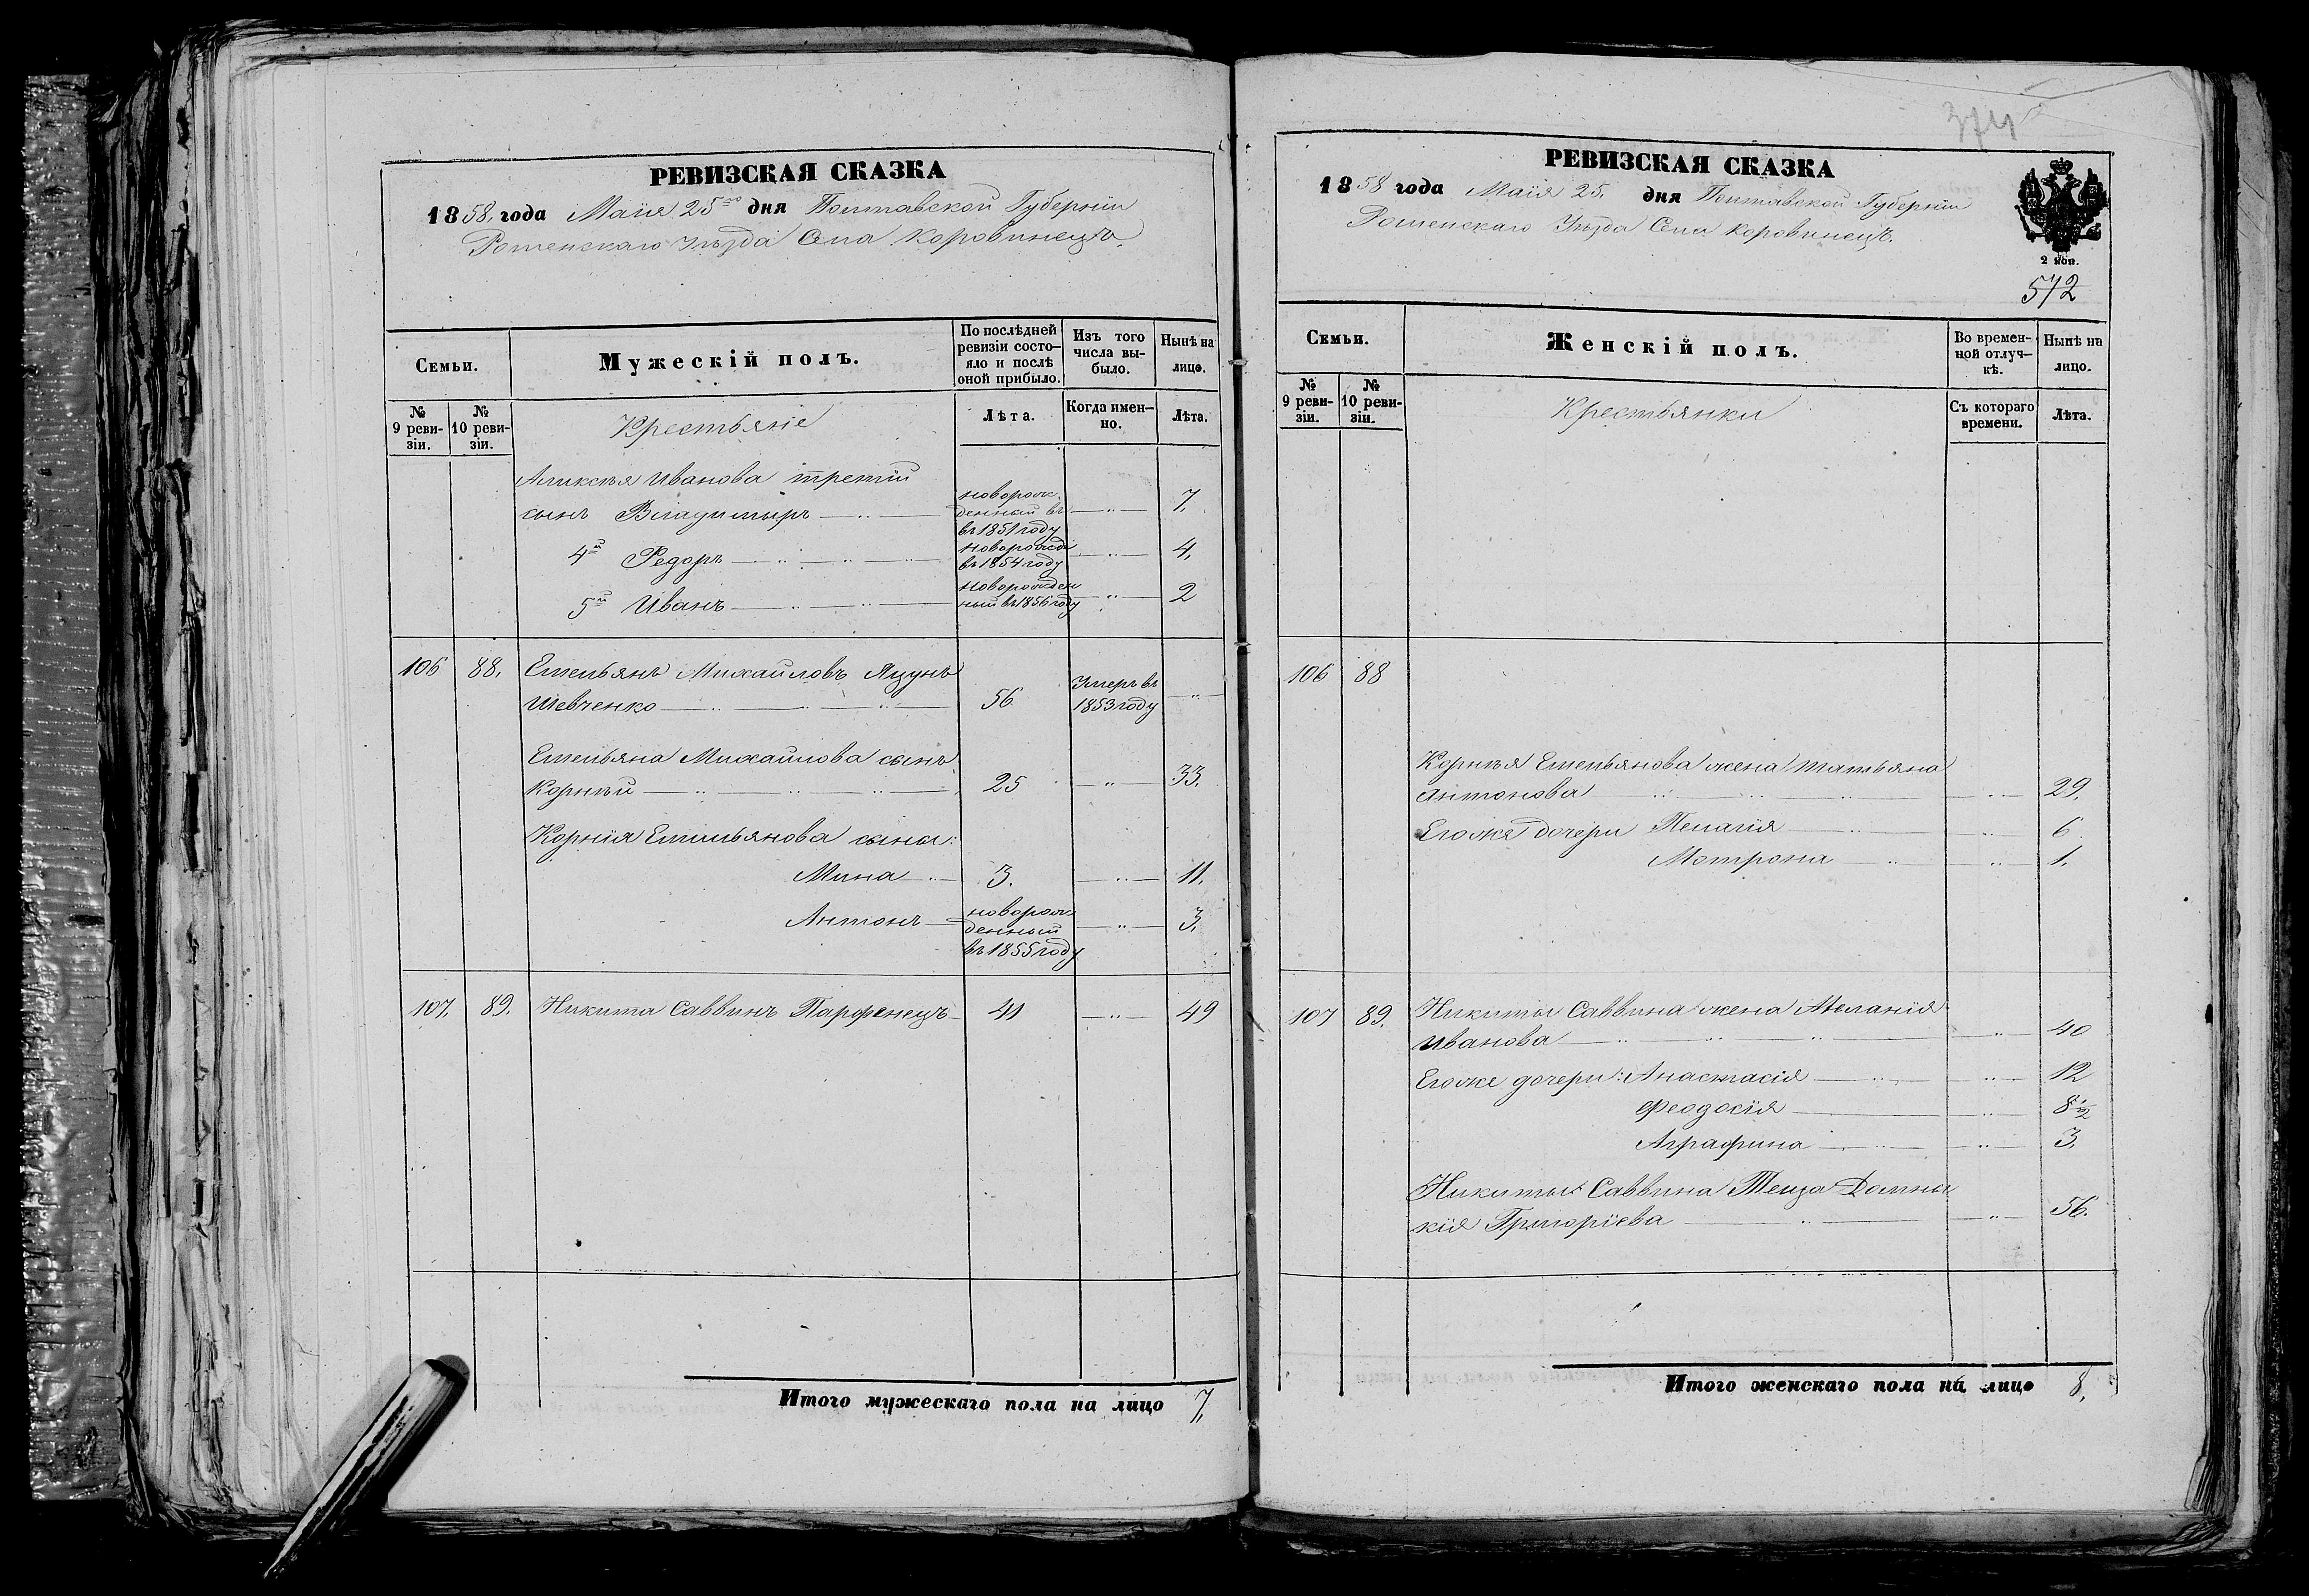 РЕВИЗСКАЯ СКАЗКА
1858 года Маія 25го дня Полтавской Губерніи
Роменскаго Уѣзда Села Коровинецъ.
Семьи.
Мужескій полъ.
По послѣдней ревизіи состо-
яло и послѣ
оной прибыло.
Изъ того
числа вы-
было.
Нынѣ на
лицо.
№
9 реви-
зіи.
№
10 реви-
зіи.
Крестьяніе
Лѣта.
Когда имен-
но.
Лѣта.
Аликсѣя Иванова третій
сынъ Владимыръ новорож
денный въ
въ 1851 году 7,
4й Федоръ новорожде
въ 1854 году 4,
5й Иванъ новорожден
ный въ 1856 году 2
106 88. Емельянъ Михайловъ Яцунъ
Шевченко 56 Умеръ въ
1853 году
Емельяна Михайлова сынъ
Корнѣй 25 33.
Корнія Емильянова сыны:
Мина 3. 11.
Антонъ новорож
денный
въ 1855 году 3,
107. 89. Никита Саввинъ Парфенецъ 41 49
Итого мужескаго пола на лицо 7,
374
РЕВИЗСКАЯ СКАЗКА
1858 года Маія 25. дня Полтавской Губерніи
Роменскаго Уѣзда Села Коровинецъ.
2 коп.
572
Семьи.
Женскій полъ.
Во времен-
ной отлуч-
кѣ.
Нынѣ на
лицо.
№
9 реви-
зіи.
№
10 реви-
зіи.
Крестьянки
Съ котораго
времени.
Лѣта.
106 88
Корнѣя Емельянова жена Татьяна
Антонова 29.
Егоже дочери Пелагія 6
Мотрона 1.
107 89. Никиты Саввина жена Меланія
Иванова 40
Егоже дочери: Анастасія 12
Феодосія 8 1/2
Аграфина 3.
Никиты Саввина Теща Домны
кія Григоріева 56.
Итого женскаго пола на лицо 8,